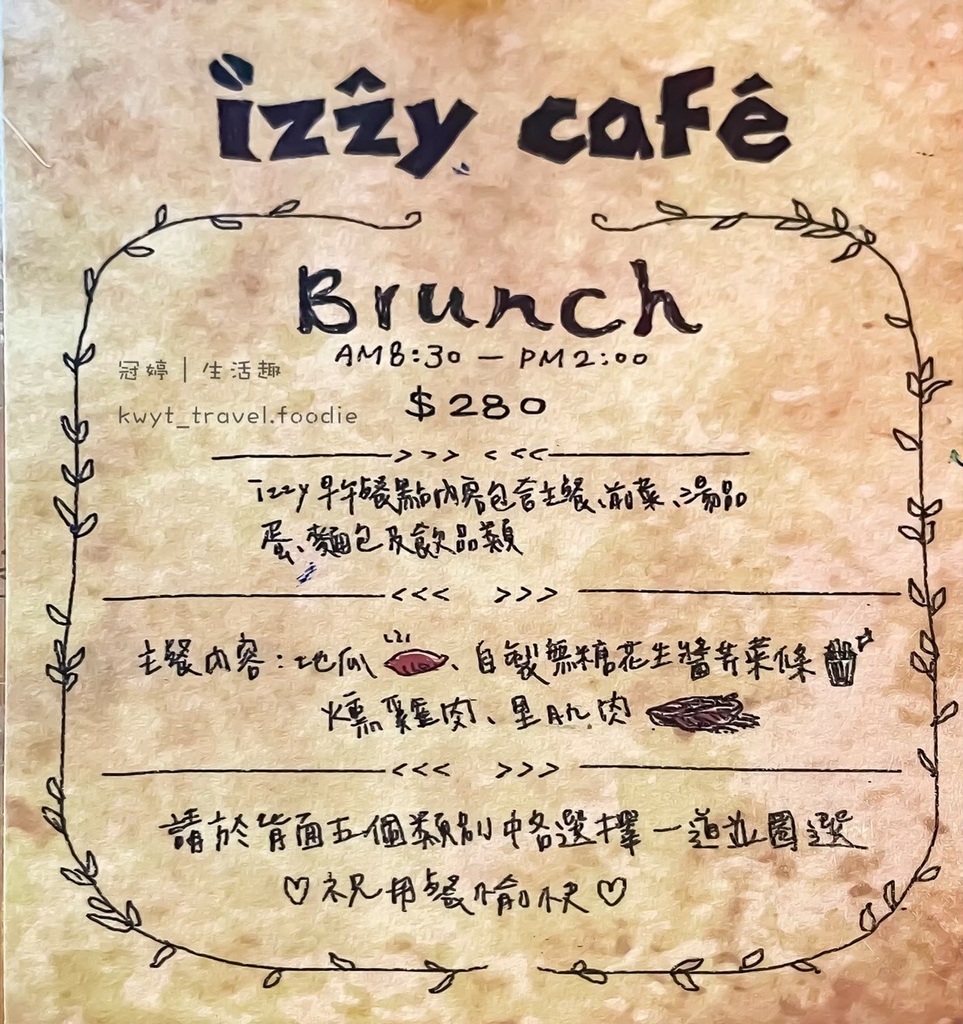 izzy café
Brunch
AM8:30 — PM2:00
冠婷｜生活趣
kwyt_travel.foodie
$280
izzy早午餐點內容包含主餐、前菜、湯品
蛋、麵包及飲品類
主餐內容：地瓜、自製無糖花生醬芹菜條
燻雞肉、里肌肉
請於背面五個類別中各選擇一道並圈選
♡祝用餐愉快♡